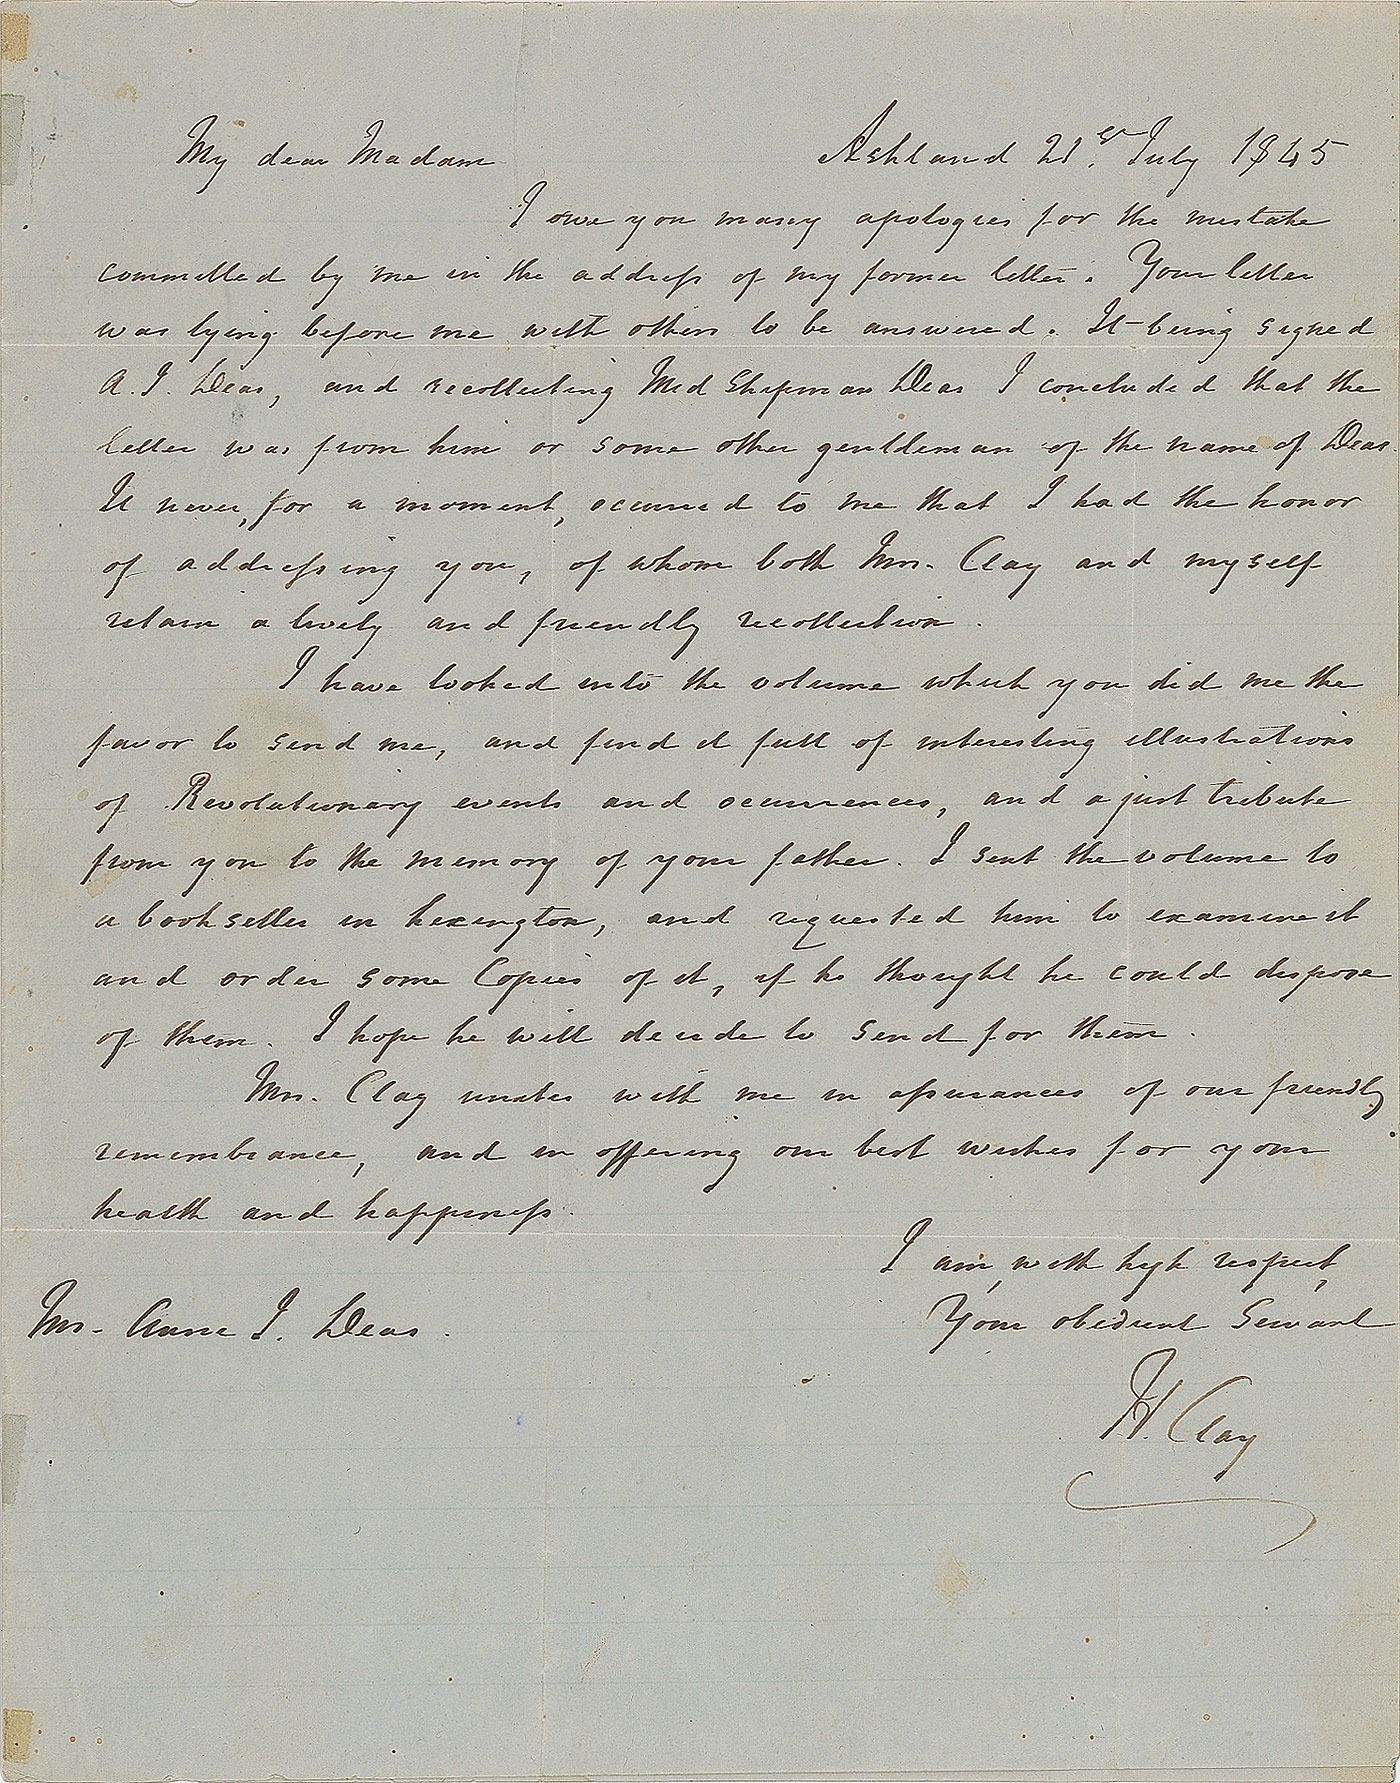 My dear Madam Ashland 21st. July 1845
I owe you many apologies for the mistake
committed by me in the address of my former letter. Your letter
was lying before me with others to be answered. It being signed
A. I. Deas, and recollecting Mid Shipman Deas I concluded that the
letter was from him or some other gentleman of the name of Deas.
It never, for a moment, occurred to me that I had the honor
of addressing you, of whom both Mrs. Clay and myself
retain a lively and friendly recollection.
I have looked into the volume which you did me the
favor to send me, and find it full of interesting illustrations
of Revolutionary events and occurrences, and a just tribute
from you to the memory of your father. I sent the volume to
a bookseller in Lexington, and requested him to examine it
and order some Copies of it, if he thought he could dispose
of them. I hope he will decide to send for them.
Mrs. Clay unites with me in assurances of our friendly
remembrance, and in offering our best wishes for your
health and happiness.
I am, with high respect,
Your obedient Servant
Mrs. Anne I. Deas.
H. Clay